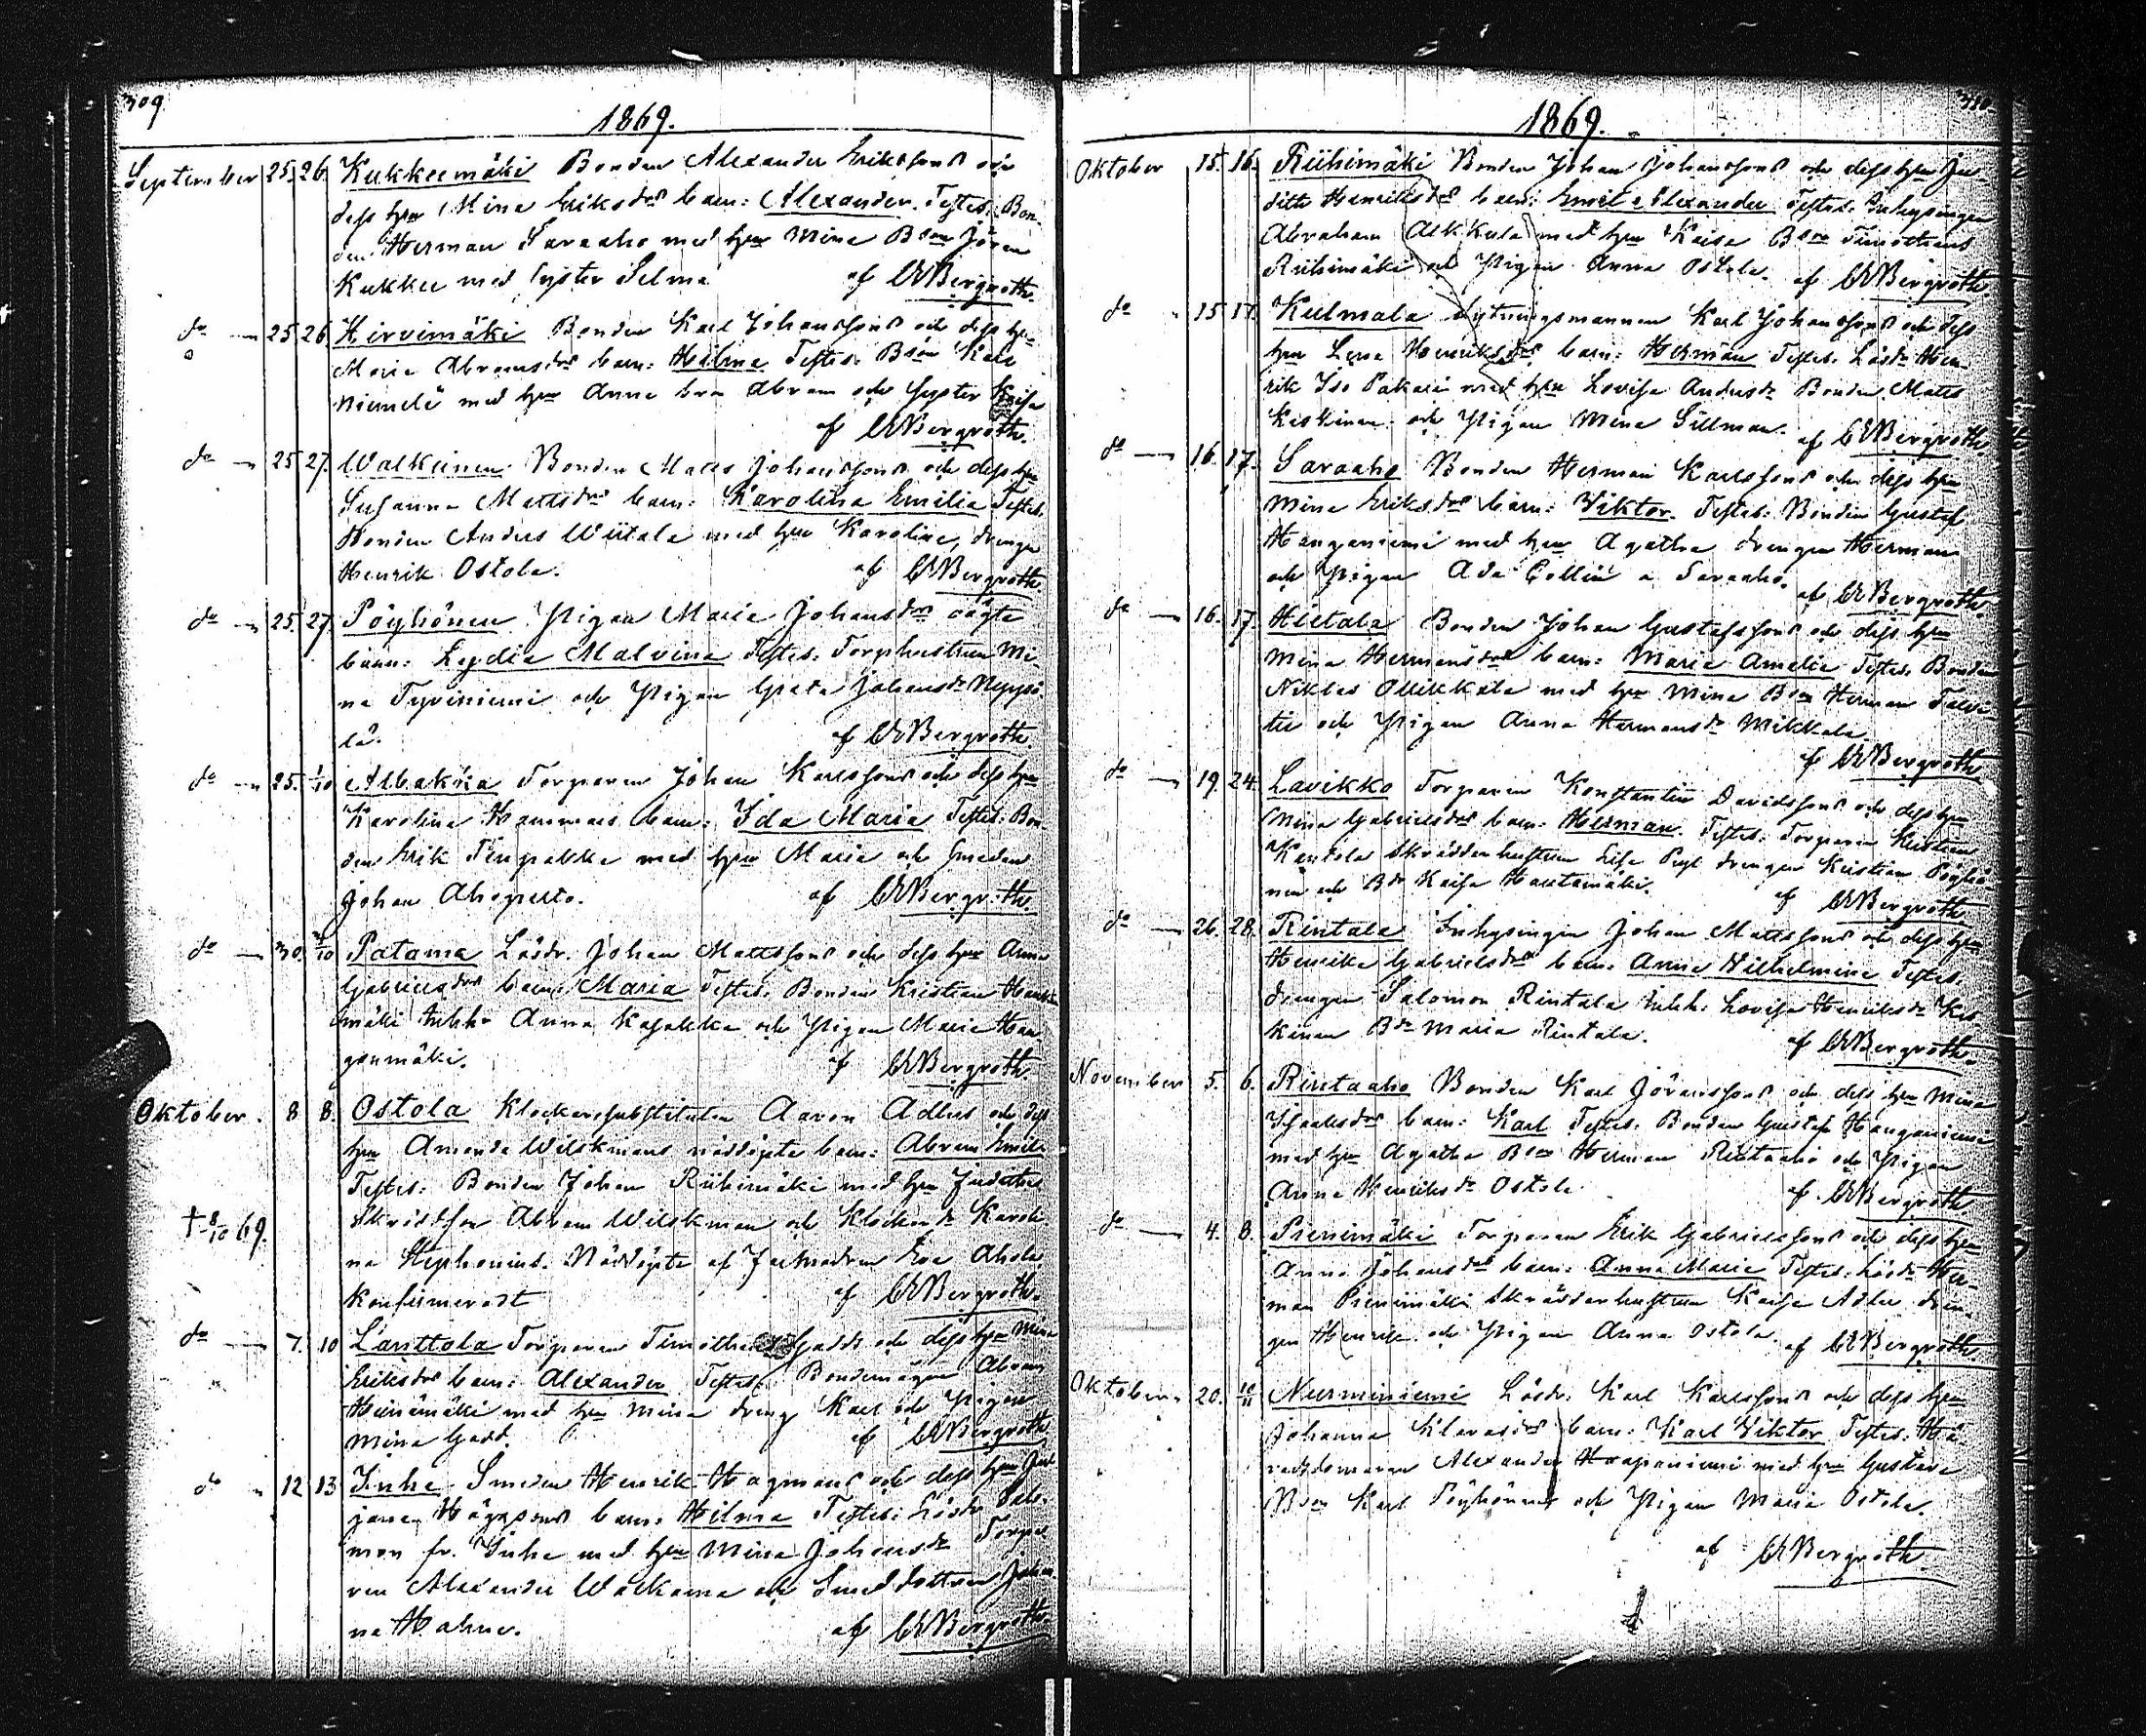 309.
1869.
September 25. 26. Kukkeemäki Bonden Alexander Erikssons och
dess hru Mina Eriksdrs barn: Alexander. Testes: Bon-
den Herman Saraaho med hru Mina Bson Jöran
Kukkee med syster Selma af CRBergroth.
do 25 26. Hirvimäki Bonden Karl Johanssons och dess hru
Maria Abramsdrs barn: Hilma Testes: Bson Karl
Niemelä med hru Anna bror Abram och syster Kaisa
af CRBergroth.
do 25 27. Walkeinen Bonden Matts Johanssons och dess hru
Susanna Mattsdrs barn: Karolina Emilia Testes:
Bonden Anders Wiitala med hru Karolina, drengen
Henrik Ostola. af CRBergroth.
do 25. 27. Pöyhönen Pigan Maria Johansdrs oägta
barn: Lydia Malvina Testes: Torphustrun Mi-
na Tyriniemi och Pigan Greta Johansdr Nyyssö-
lä. af CRBergroth.
do 25. 1/10 Torparen Johan Karlssons och dess hru
Karolina Hammars barn: Ida Maria Testes: Bon-
den Erik med hru Maria och Smeden
Johan Ahopelto. af CRBergroth.
do 30. /10 Patama Lösdr. Johan Mattssons och dess hru Anna
Gabrielsdrs barn: Maria Testes: Bonden Kristian
mäki Inhh. Anna Kasakka och Pigan Maria Han-
genmäki. af CRBergroth.
Oktober. 8 8. Ostola Klockaresubstituten Aaron Adlers och dess
hru Amanda Wilskmans nöddöpta barn: Abram Emil
Testes: Bonden Johan Riihimäki med hru Judith
† 8/10 69. Abram Wilskman och Karoli-
na Stephonius. Nöddöpte af Eva Ahola
Konfirmeradt af CRBergroth.
do 7. 10 Lanttola Torparen Timotheus Gadds och dess hru Mina
Eriksdrs barn: Alexander Testes: Bondemågen Abram
med hru Mina dreng Karl och Pigan
Mina Gadd. af CRBergroth
do 12 13 Inha Smeden Henrik Hagmans och dess hru
barn: Hilma Testes: Lösdr Salo-
mon fr. Inha med hru Mina Johansdr Torpa-
ren Alexander Walkama och Smeddottren Johan-
na af CRBergroth.
1869.
Oktober 15. 16. Riihimäki Bonden Johan Johanssons och dess hru Ju-
dith Henriksdrs barn: Emil Alexander Testes: Inhysingen
Abraham Alkkula med hru Kaisa Bson Timotheus
Riihimäki och Pigan Anna Ostola. af CRBergroth.
do 15 17. Kulmala Lytningsmannen Karl Johanssons och dess
hru Lena Henriksdrs barn: Herman Testes: Lösdr Hen-
rik Iso Pakari med hru Lovisa Andersdr Bonden Matts
Keskinen och Pigan Mina Sillman. af CRBergroth
do 16. 17. Saraaho Bonden Herman Karlssons och dess hru
Mina Eriksdrs barn: Viktor. Testes: Bonden Gustaf
Hanganiemi med hru Agatha drengen Herman
och Pigan Ada Collin a Saraaho. af CRBergroth.
do 16. 17. Hietala Bonden Johan Gustafssons och dess hru
Mina Hermansdrs barn: Maria Amalia Testes: Bonden
Niklas Ollikkala med hru Mina Bson Herman Talvi-
tie och Pigan Anna Hermansdr Mikkala
af CRBergroth
do 19. 24. Lavikko Torparen Konstantin Davidssons och dess hru
Mina Gabrielsdrs barn: Herman. Testes: Torparen Kristian
Kantola Skräddarhustrun Lisa drengen Kristian Pöyhö-
nen och Bdr Kaisa Hautamäki. af CRBergroth
do 26. 28. Rintala Inhysingen Johan Mattssons och dess hru
Henrika Gabrielsdrs barn: Anna Vilhelmina Testes:
Drengen Salomon Rintala Inhh. Lovisa Henriksdr Kes-
kinen Bdr Maria Rintala. af CRBergroth.
November 5. 6. Rintaaho Bonden Karl Jöranssons och dess hru Mina
Isaaksdrs barn: Karl Testes: Bonden Gustaf Hanganiemi
med hru Agatha Bson Herman Rintaaho och Pigan
Anna Henriksdr Ostola af CRBergroth
do 4. 8. Pienimäki Torparen Erik Gabrielssons och dess hru
Anna Johansdrs barn: Anna Maria Testes: Lösdr Her-
man Pienimäki Skräddarhustrun Kaisa Adler dren-
gen Henrik och Pigan Anna Ostola. af CRBergroth
Oktober 20. 10/11 Nurminiemi Lösdr. Karl Karlssons och dess hru
Johanna barn: Karl Viktor Testes: Hä-
radsdomaren Alexander Haapaniemi med hru Gustava
Bson Karl Pöyhönen och Pigan Maria Ostola.
af CRBergroth